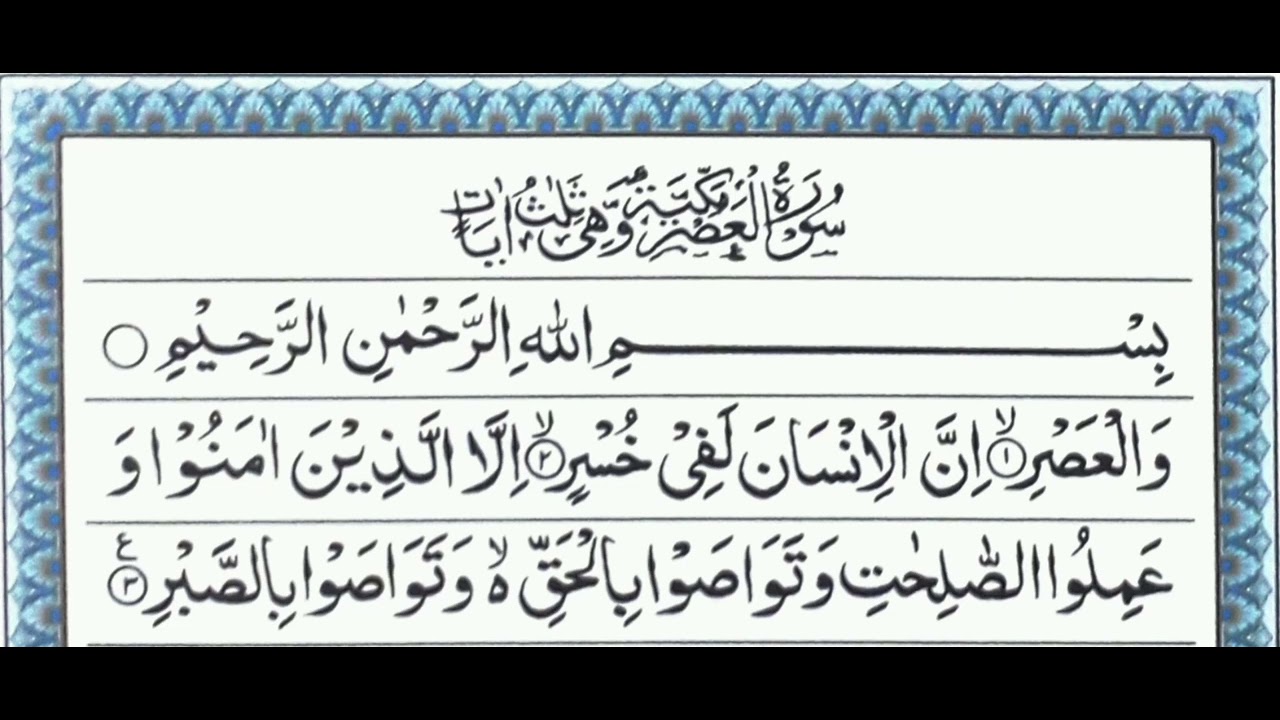 سُوْرَةُ الْعَصْرِ مَكِّيَّةٌ وَّهِيَ ثَلٰثُ اٰيَاتٍ
بِسْمِ اللهِ الرَّحْمٰنِ الرَّحِيْمِ ○
وَالْعَصْرِۙ ۱ اِنَّ الْاِنْسَانَ لَفِیْ خُسْرٍۙ ۲ اِلَّا الَّذِيْنَ اٰمَنُوْا وَ
عَمِلُوا الصّٰلِحٰتِ وَتَوَاصَوْا بِالْحَقِّ ۙ۵ وَتَوَاصَوْا بِالصَّبْرِ ۳ ع